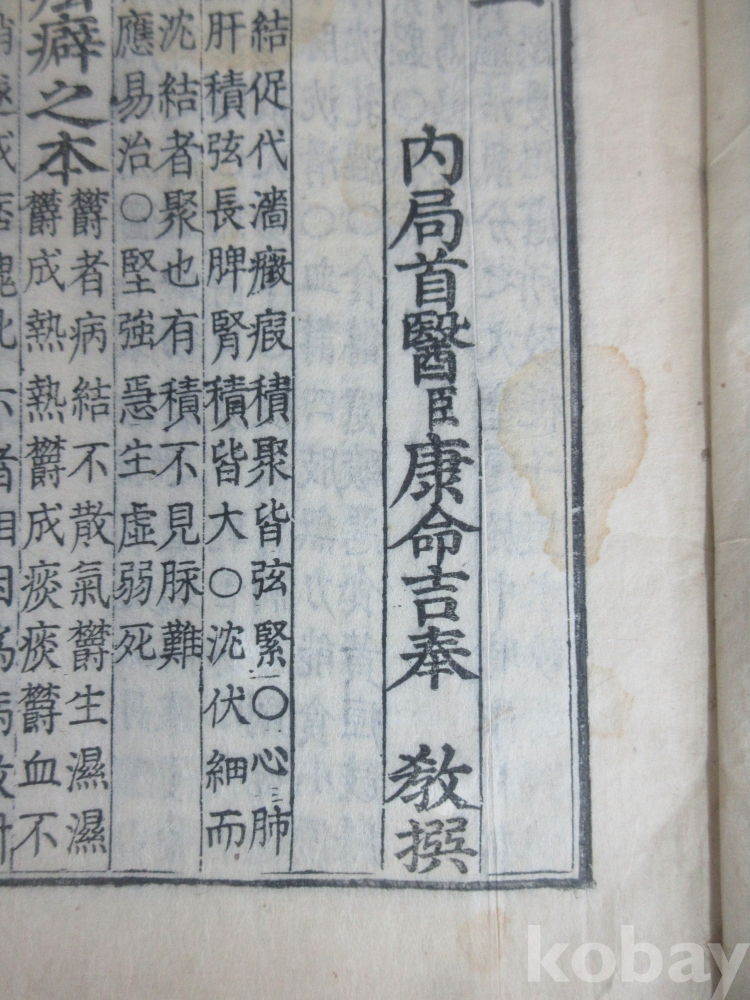 內局首醫臣康命吉奉 敎撰
結促代濇癥瘕積聚皆弦緊○心肺
肝積弦長脾腎積皆大○沈伏細而
沈結者聚也有積不見脉難
應易治○堅強急生虛弱死
癖之本
欝者病結不散氣欝生濕濕
欝成熱熱欝成痰痰欝血不
者相因爲病
kobay